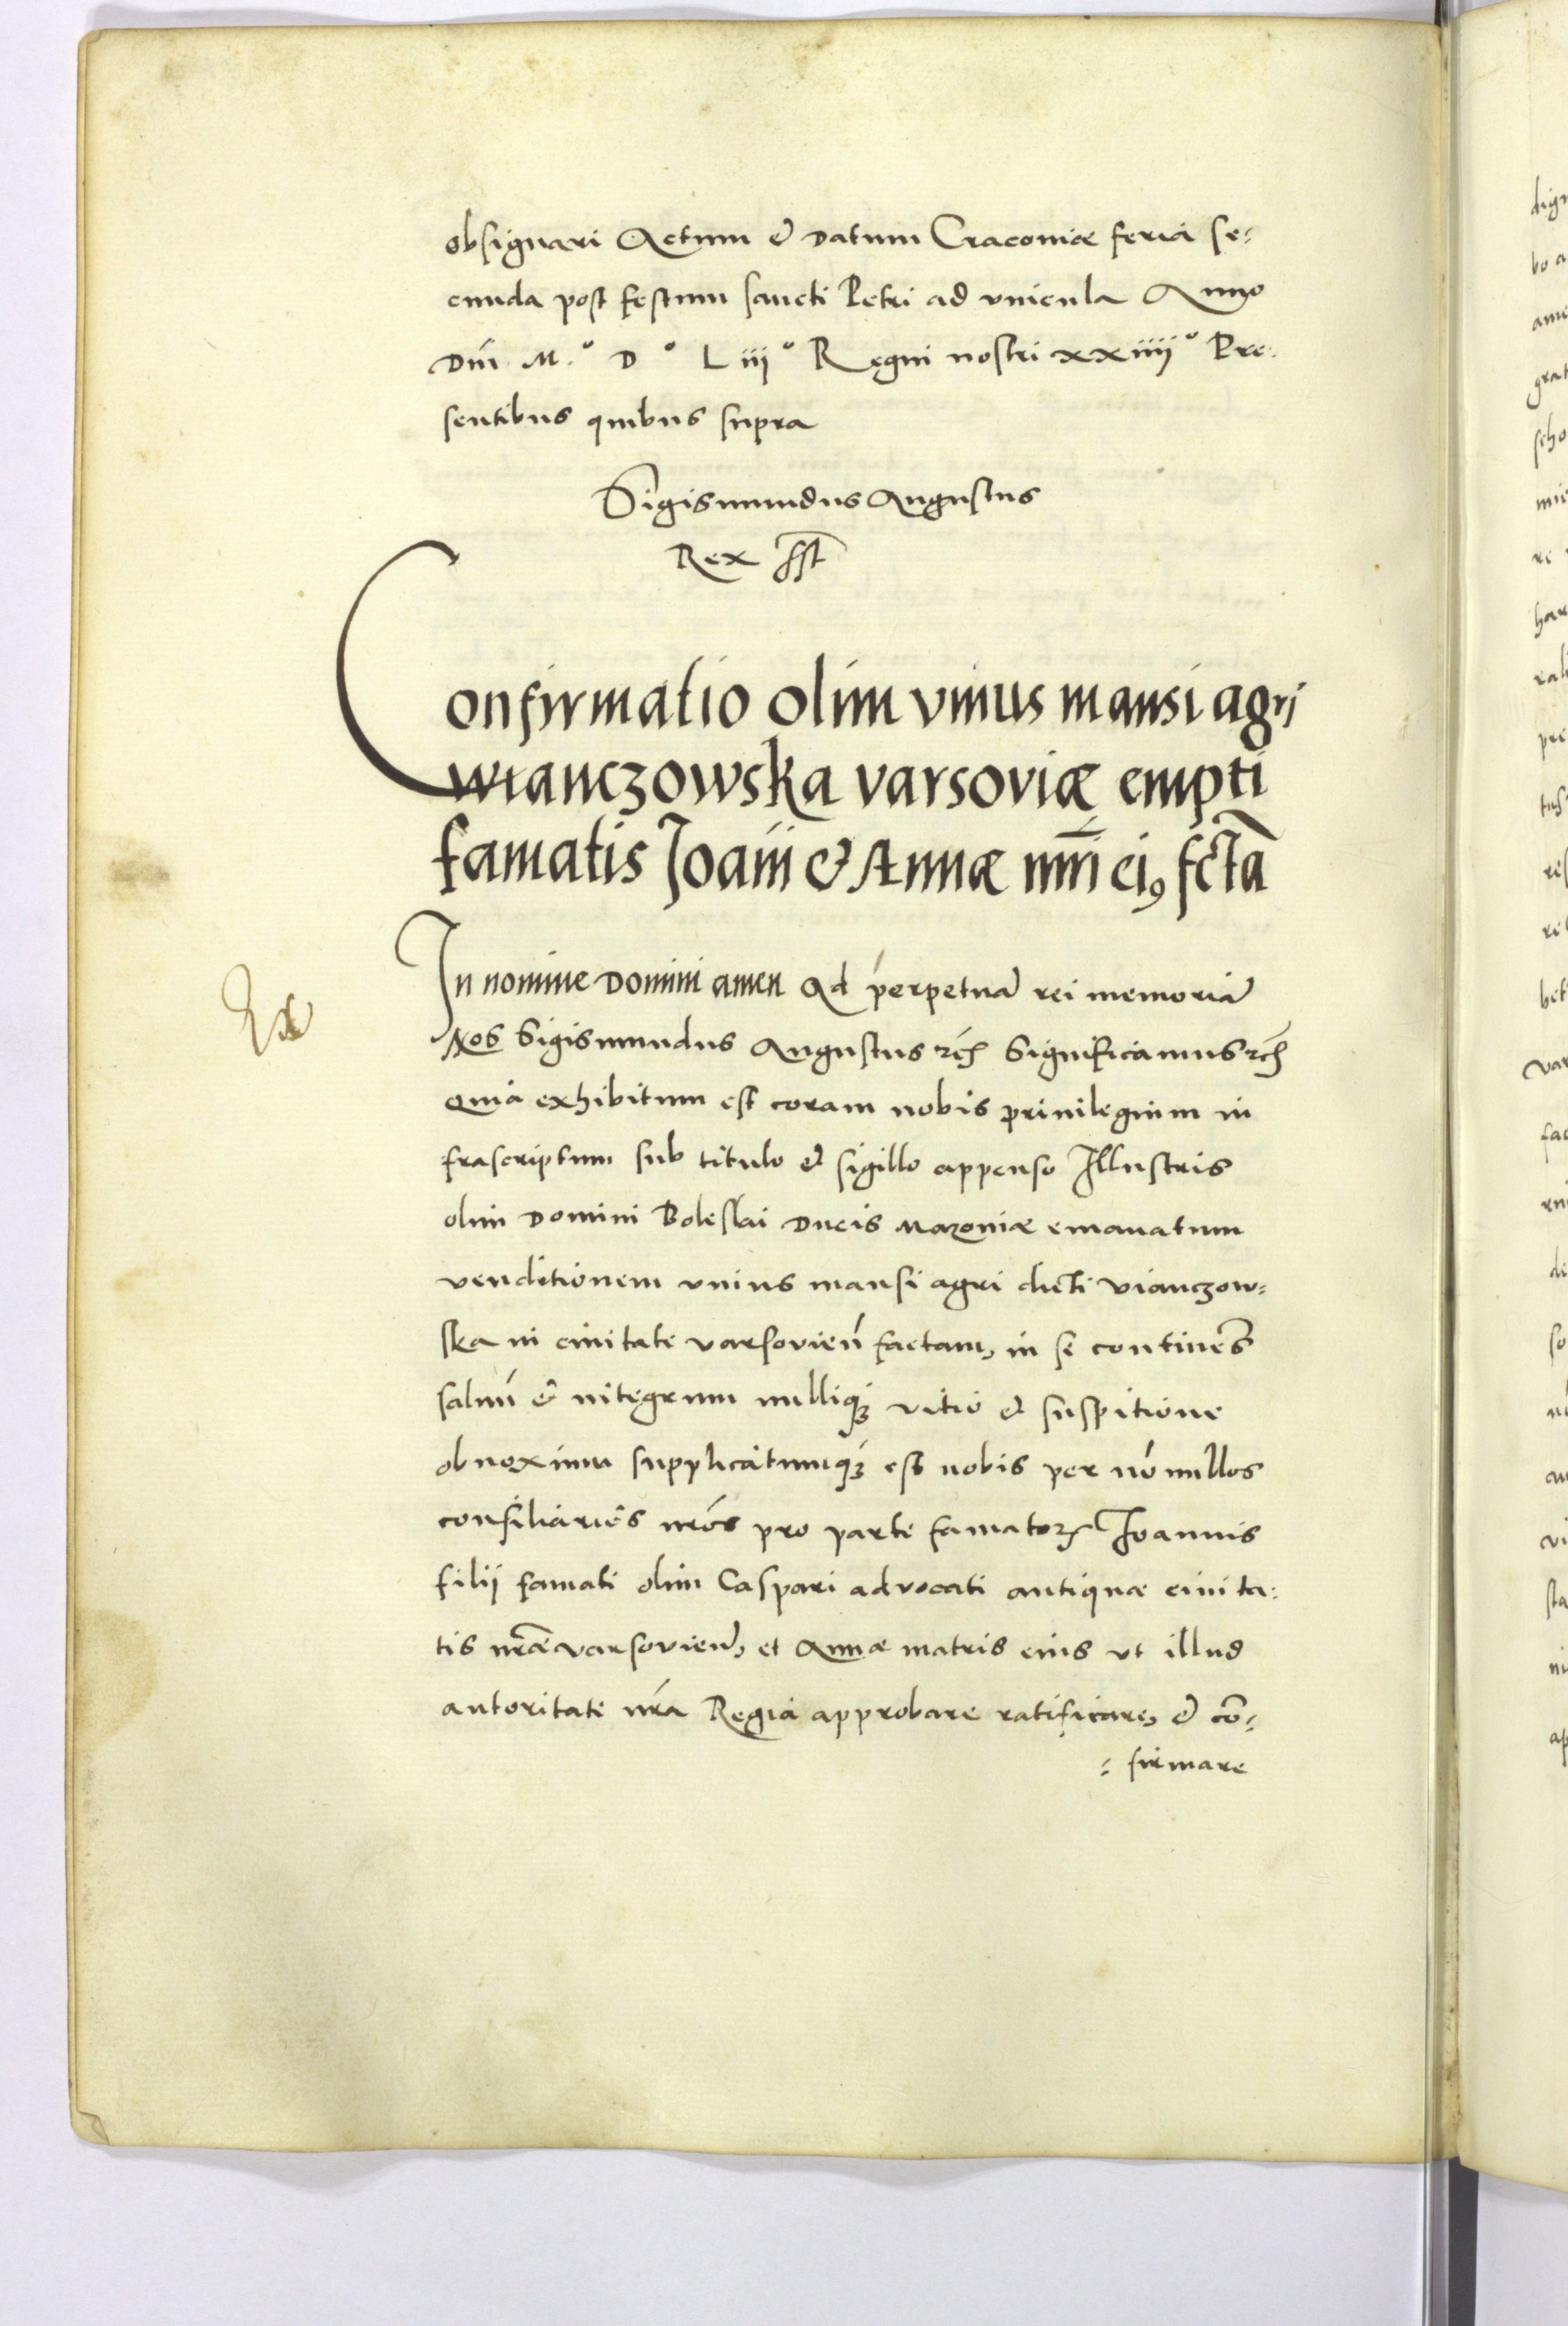 obsignari Actum & Datum Cracoviæ feria se:
cunda post festum sancti Petri ad vincula Anno
Dni M.º D º L iij º Regni nostri xxiiij º Pre:
sentibus quibus supra
Sigismundus Augustus
Rex sst
Confirmatio olim vnius mansi agri
wianczowska varsoviæ empti
famatis Joanni & Annæ mri ei9 fcta
In nomine Domini amen Ad perpetuā rei memoriā
Nos Sigismundus Augustus etc̄ Significamus etc̄
quia exhibitum est coram nobis priuilegium in
frascriptum sub titulo & sigillo appenso Illustris
olim Domini Boleslai Ducis Mazouiæ emanatum
venditionem vnius mansi agri dicti vianczow:
ska in ciuitate varsovień factam, in se continēs
saluū & integrum nulliqꝫ vitio & suspitione
obnoxium supplicatumqꝫ est nobis per nō nullos
consiliarios nros pro parte famatoꝝ Joannis
filii famati olim Caspari advocati antiquæ ciuita:
tis nræ varsovień, et Annæ matris eius vt illud
autoritate nra Regia approbare ratificare, & cō:
: firmare